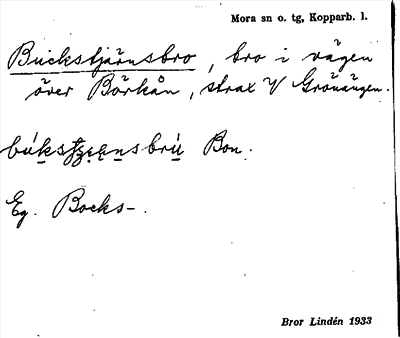 Mora sn o. tg, Kopparb. l.
Buckstjärnsbro, bro i vägen
över Börkån, strax V Gröväng­en.
Bon.
Eg. Bocks-.
Bror Lindén 1933